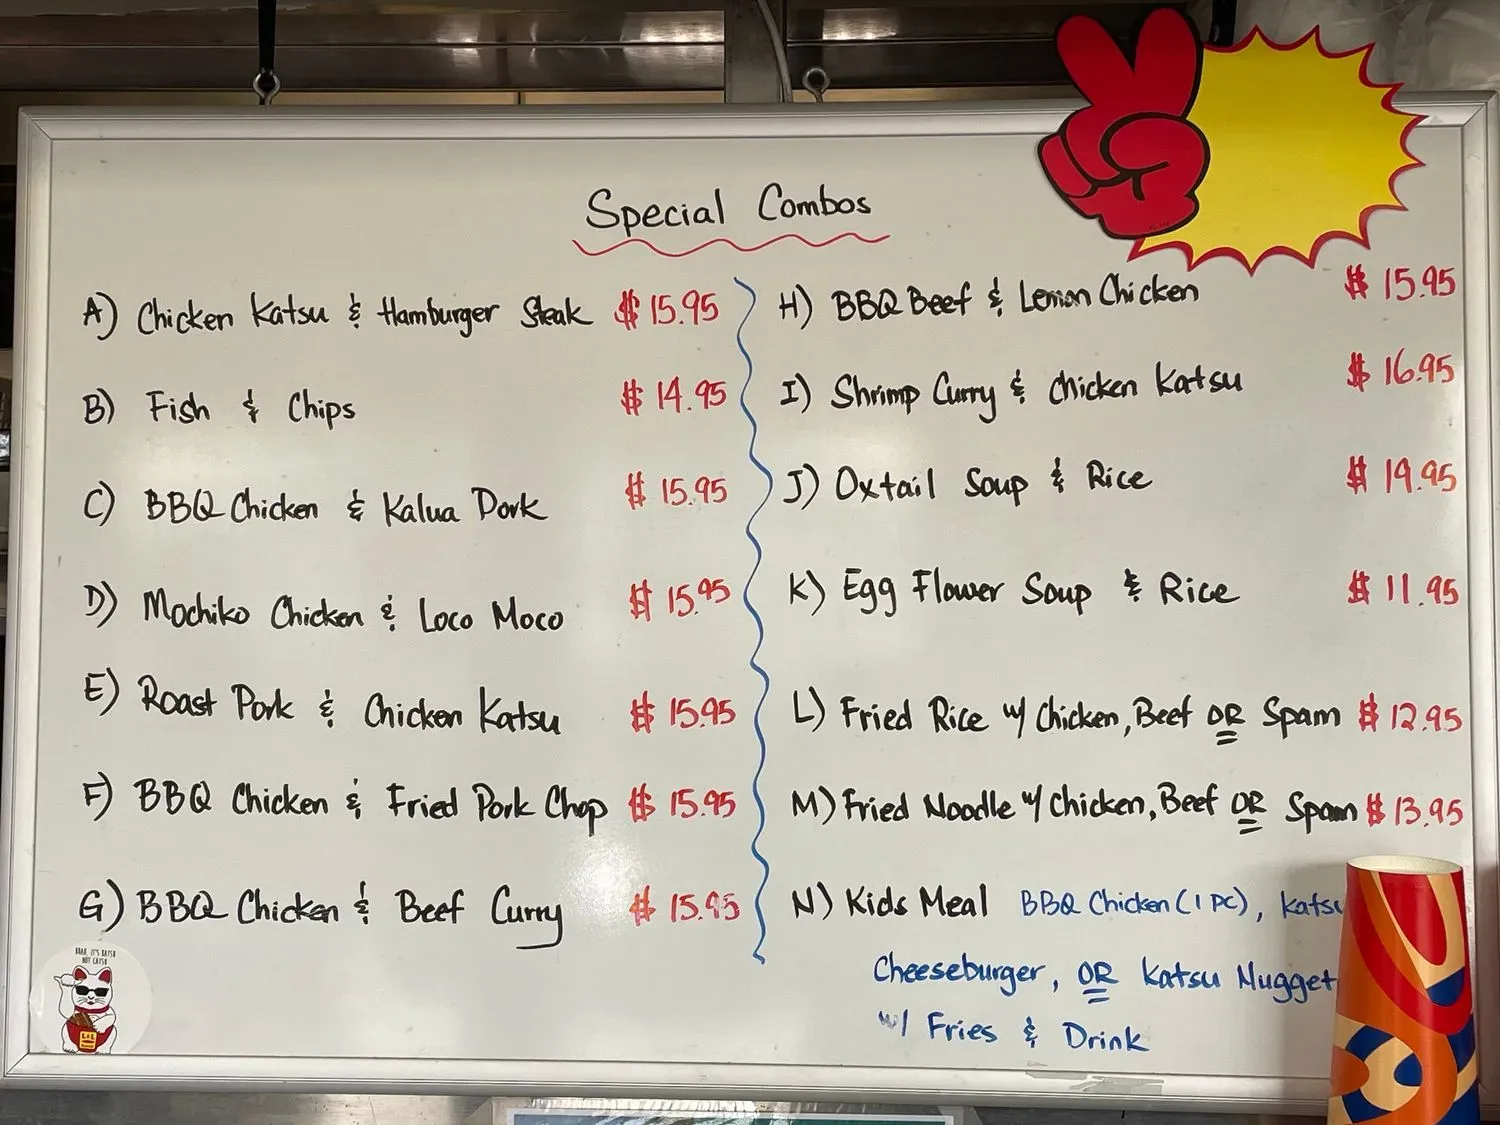 Special Combos
A) Chicken Katsu & Hamburger Steak $15.95
B) Fish & Chips $14.95
C) BBQ Chicken & Kalua Pork $15.95
D) Mochiko Chicken & Loco Moco $15.95
E) Roast Pork & Chicken Katsu $15.95
F) BBQ Chicken & Fried Pork Chop $15.95
G) BBQ Chicken & Beef Curry $15.95
H) BBQ Beef & Lemon Chicken $15.95
I) Shrimp Curry & Chicken Katsu $16.95
J) Oxtail Soup & Rice $19.95
K) Egg Flower Soup & Rice $11.95
L) Fried Rice w/ Chicken, Beef OR Spam $12.95
M) Fried Noodle w/ Chicken, Beef OR Spam $13.95
N) Kids Meal BBQ Chicken (1 PC), Katsu
Cheeseburger, OR Katsu Nugget
w/ Fries & Drink
IT'S KATSU
NOT CATSU